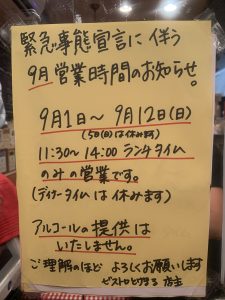 緊急事態宣言に伴う
9月営業時間のお知らせ。
9月1日～9月12日(日)
(5日(日)は休みます)
11:30～14:00 ランチタイム
のみの営業です。
(ディナータイムは休みます)
アルコールの提供は
いたしません。
ご理解のほど よろしくお願いします
ビストロ 店主